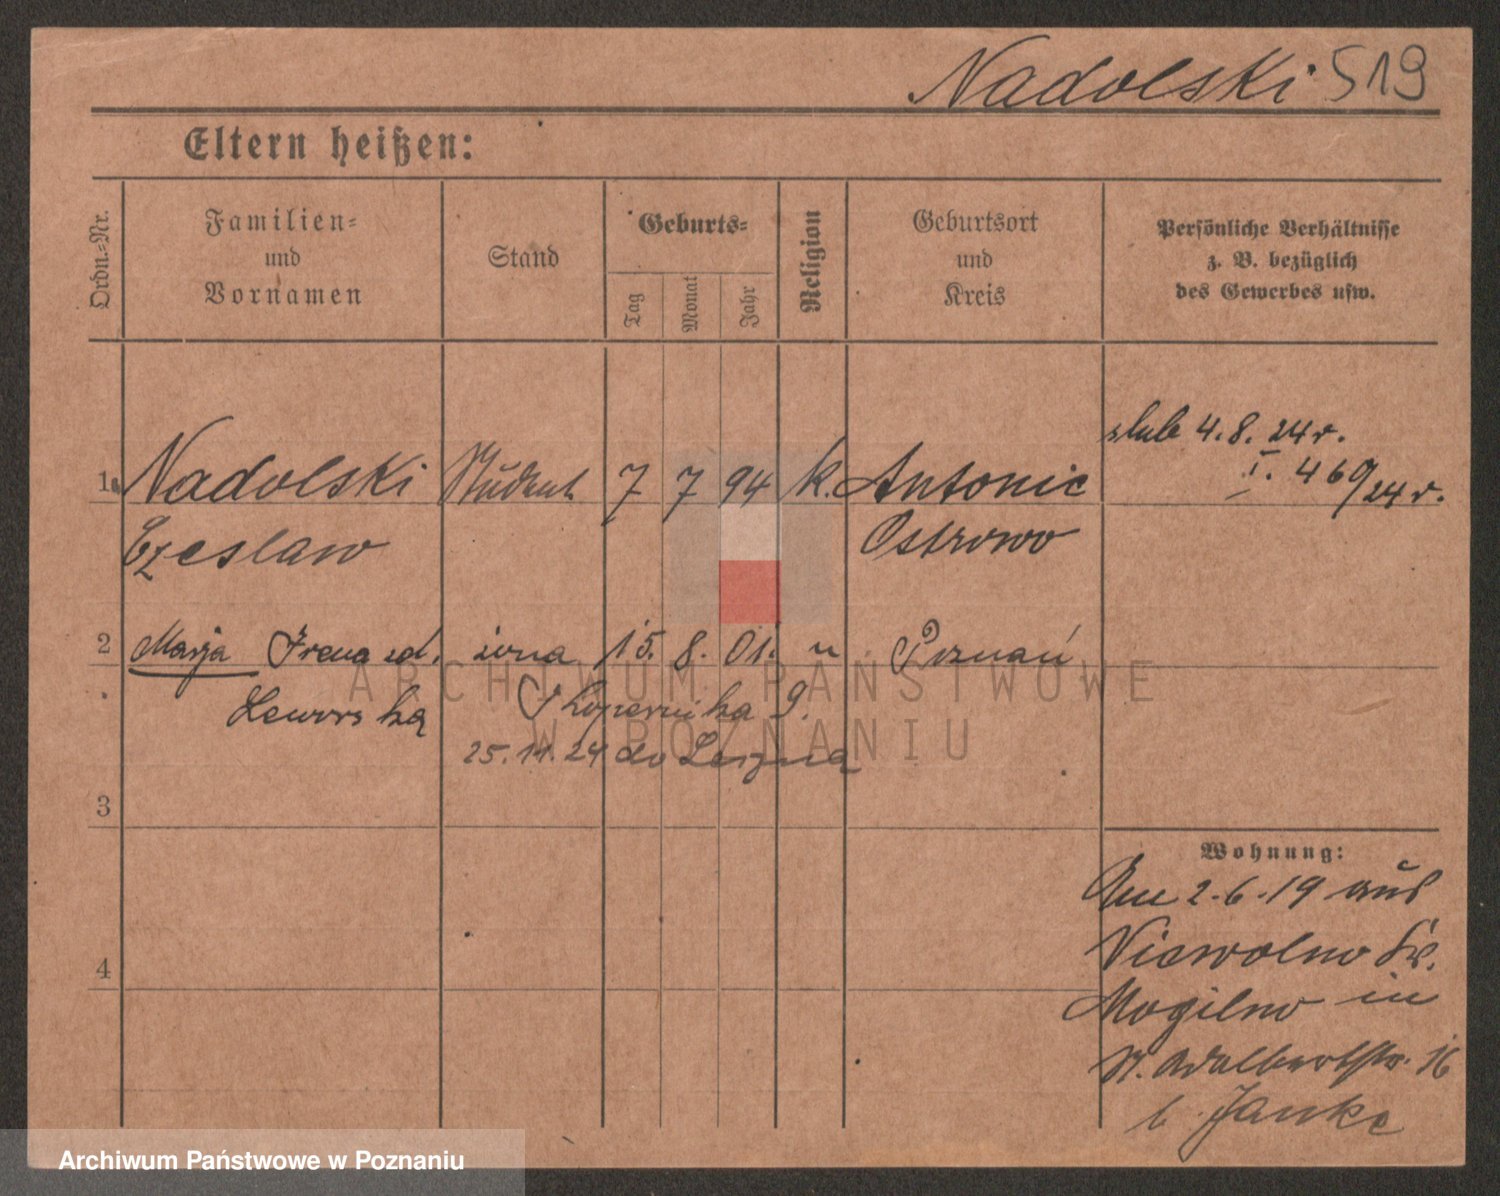 Nadolski 519
Eltern heißen:
Ordn.-Nr.
Familien-
und
Vornamen
Stand
Geburts-
Tag
Monat
Jahr
Religion
Geburtsort
und
Kreis
Persönliche Verhältnisse
z. B. bezüglich
des Gewerbes usw.
ślub 4.8.24 r.
I. 469/24 r.
1. Nadolski Student 7 7 94 k. Antonie
Czeslaw Ostrowo
2 Marja Irena zd. żona 15. 8. 01. " Poznań
Kopernika 9.
25.11.24 do Leszna
3
4
Wohnung:
Am 2.6.19 aus
Niewolno Kr.
Mogilno in
St. Adalbertstr. 16
b. Janke
ARCHIWUM PAŃSTWOWE
W POZNANIU
Archiwum Państwowe w Poznaniu